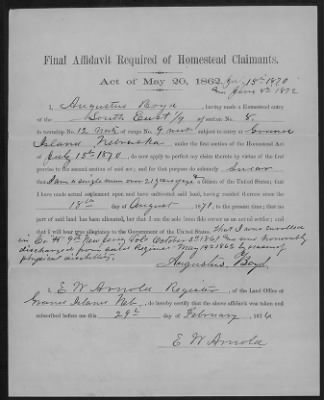 Final Affidavit Required of Homestead Claimants.
Act of May 20, 1862. July 15th 1870
June 8th 1872
I, Augustus Boyd, having made a Homestead entry
of the South East 1/4 of section No. 8,
in township No. 12 North of range No. 9 West subject to entry at Grand
Island Nebraska under the first section of the Homestead Act
of July 15th 1870, do now apply to perfect my claim thereto by virtue of the first
proviso to the second section of said act; and for that purpose do solemnly Swear
that I am a single man over 21 years of age & a citizen of the United States; that I
have made actual settlement upon and have cultivated said land, having resided thereon since the
18th day of August 1871, to the present time; that no
part of said land has been alienated, but that I am the sole bona fide owner as an actual settler; and
that I will bear true allegiance to the Government of the United States. That I was enrolled
in Co H 9th New Jersey Vols October 8th 1861 and was honorably
discharged from said Regiment May 1862 by reason of
physical disability.
Augustus Boyd
I, E W Arnold Register, of the Land Office at
Grand Island Neb., do hereby certify that the above affidavit was taken and
subscribed before me this 29th day of February, 1876
E W Arnold